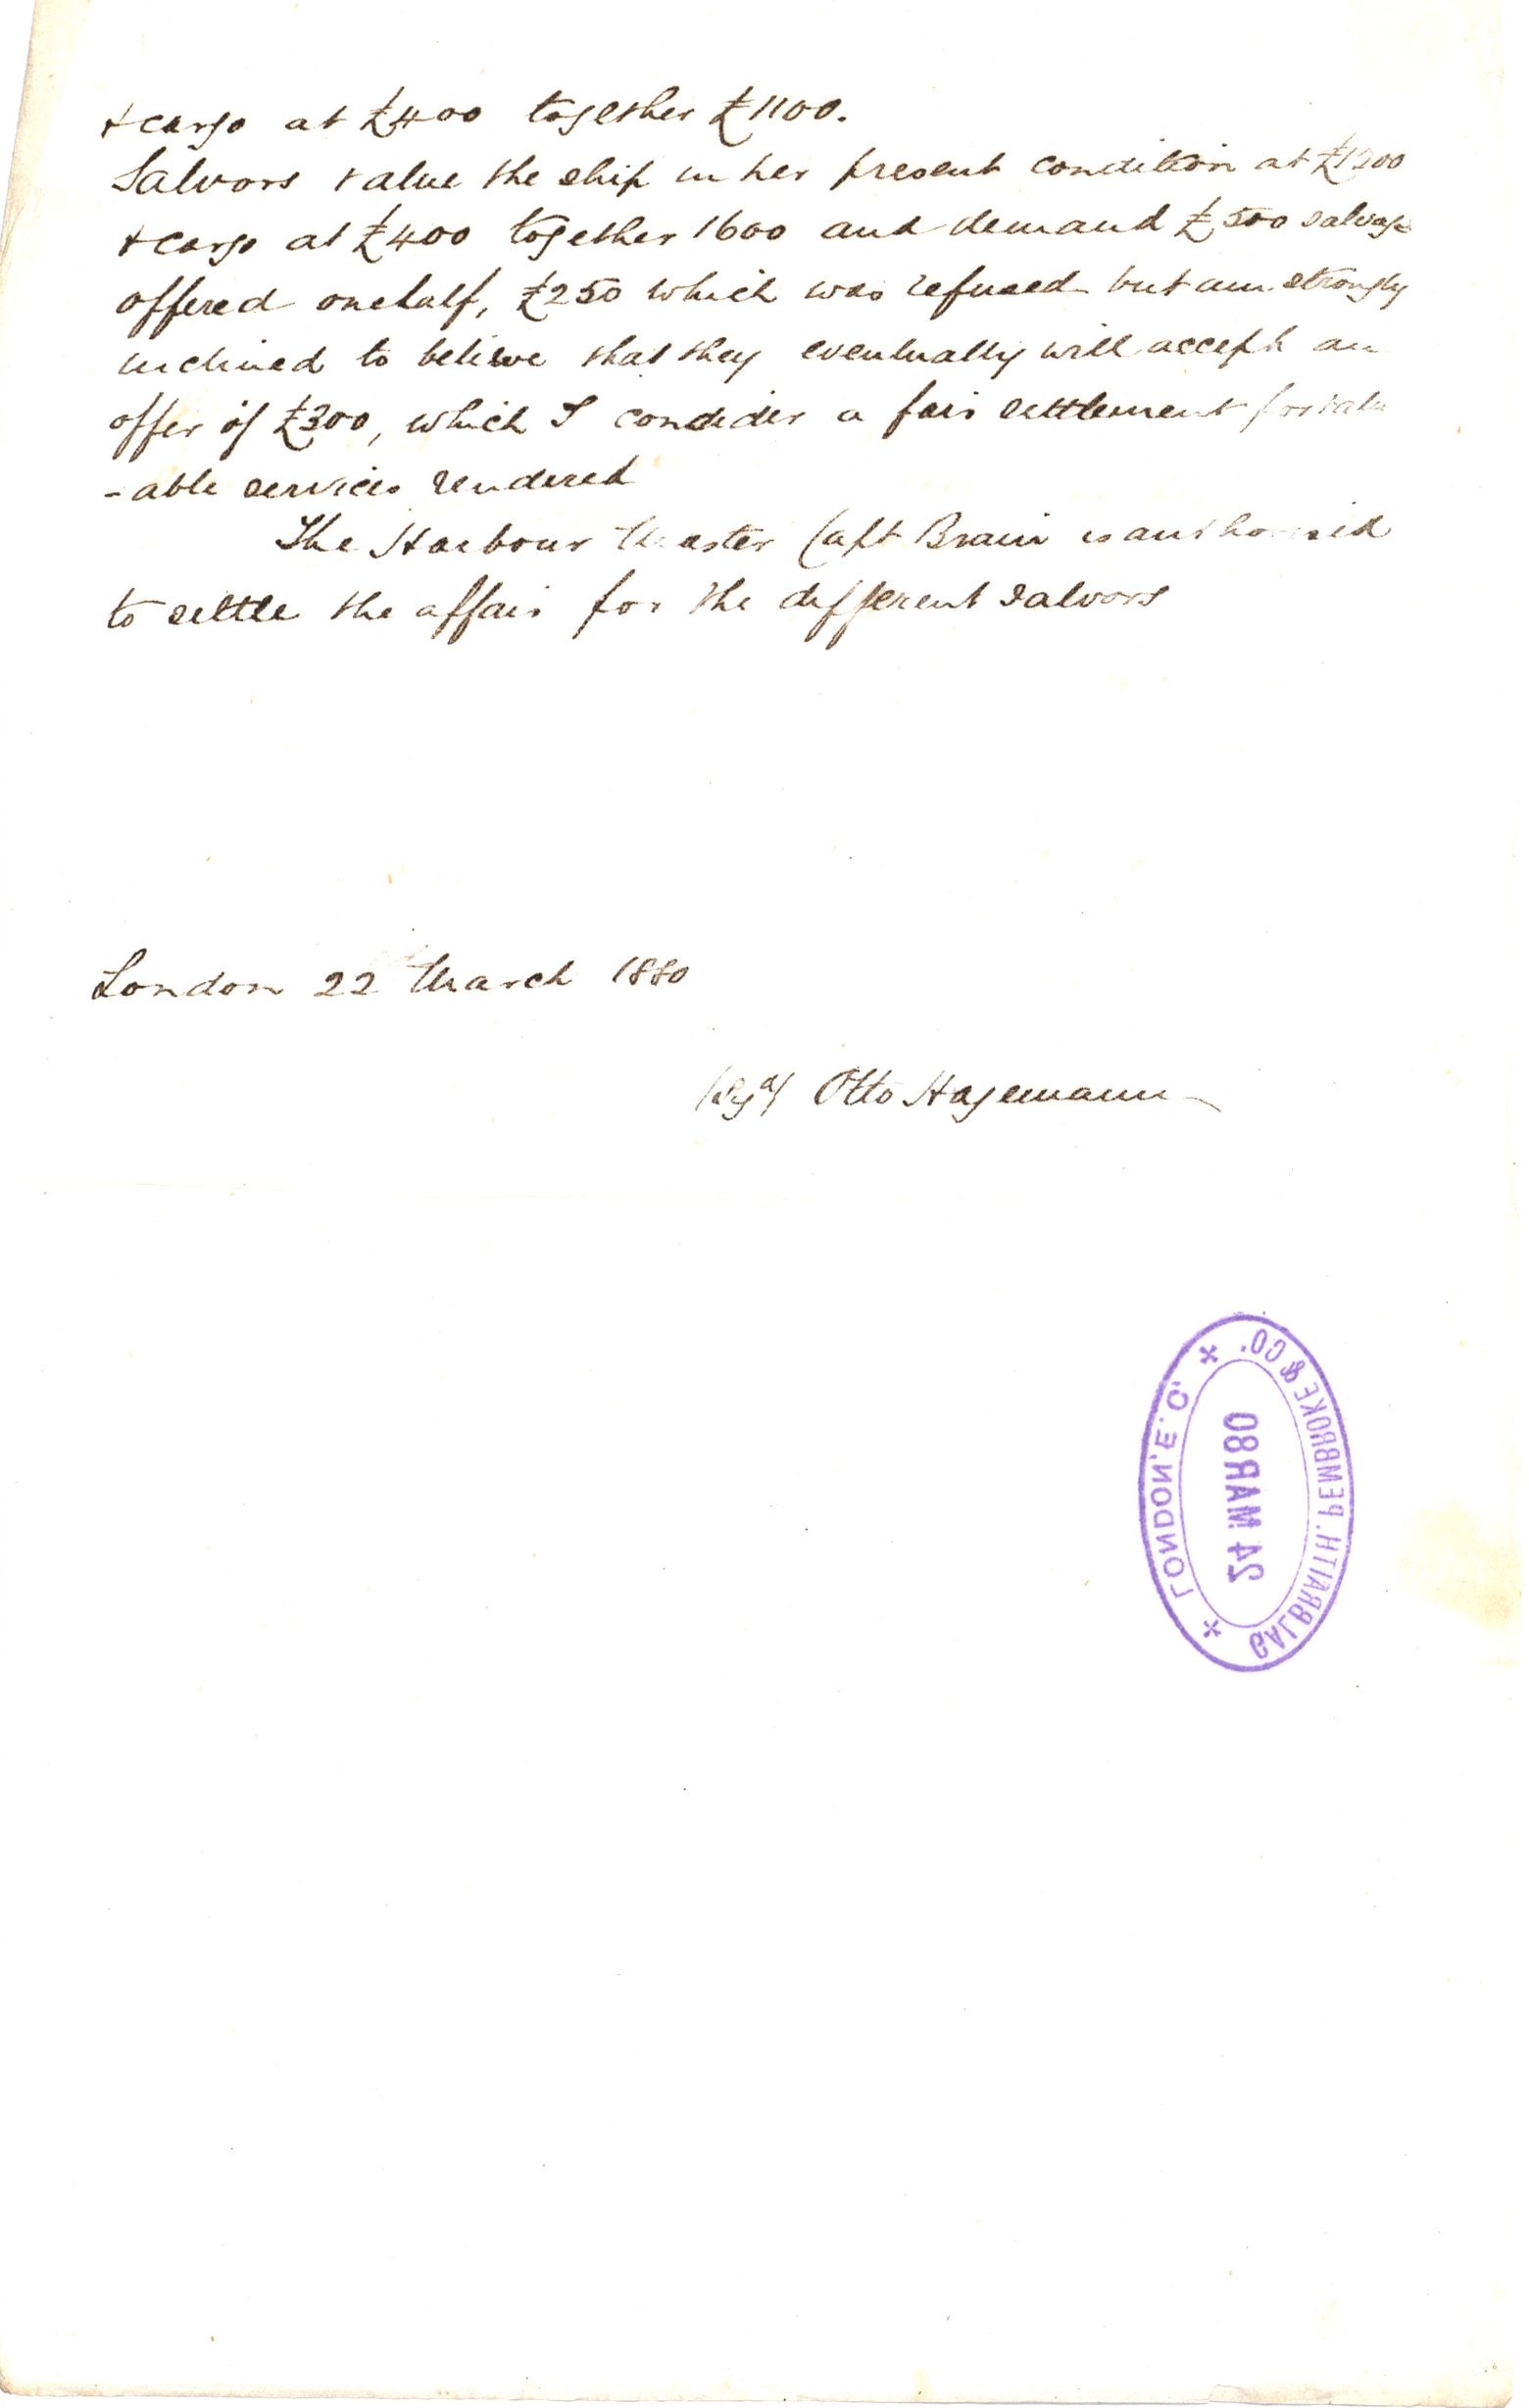 & cargo at £400 together £1100.
Salvors value the ship in her present condition at £1200
& cargo at £400 together 1600 and demand £500 salvage
offered onehalf, £250 which was refused but am strongly
inclined to believe that they eventually will accept an
offer of £300, which I consider a fair settlement for valu
-able services rendered
The Harbour Master Capt Brain is authorised
to settle the affair for the different salvors
London 22 March 1880
(Sgd) Otto Hagemann
GALBRAITH, PEMBROKE & CO.
24 MAR 80
LONDON, E.C.